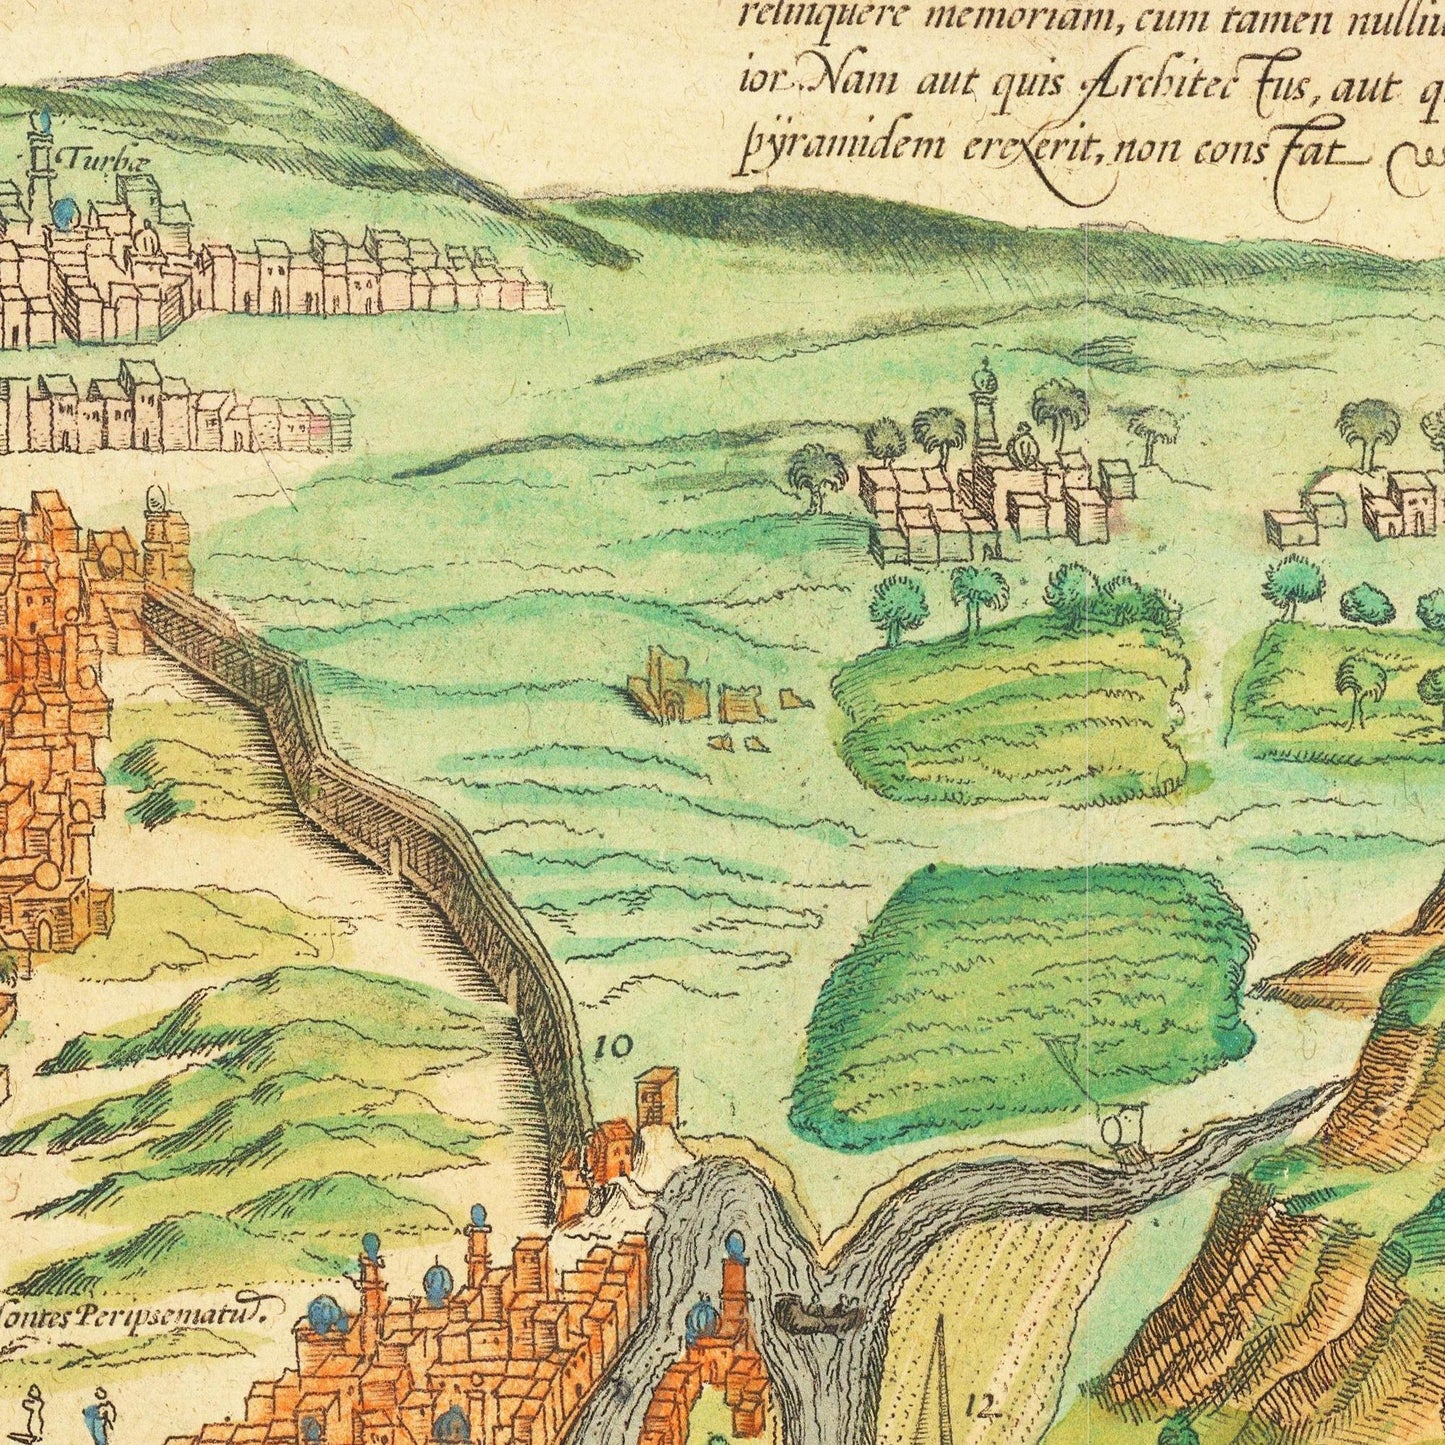 relinquere memoriam, cum tamen nulliu
ior. Nam aut quis Architectus, aut q
pÿramidem erexerit, non constat
Turbæ
10
ontes Peripsematu͂.
12